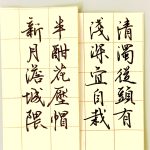 清濁從頭有
淺深宜自裁
半酣花壓帽
新月落城隈